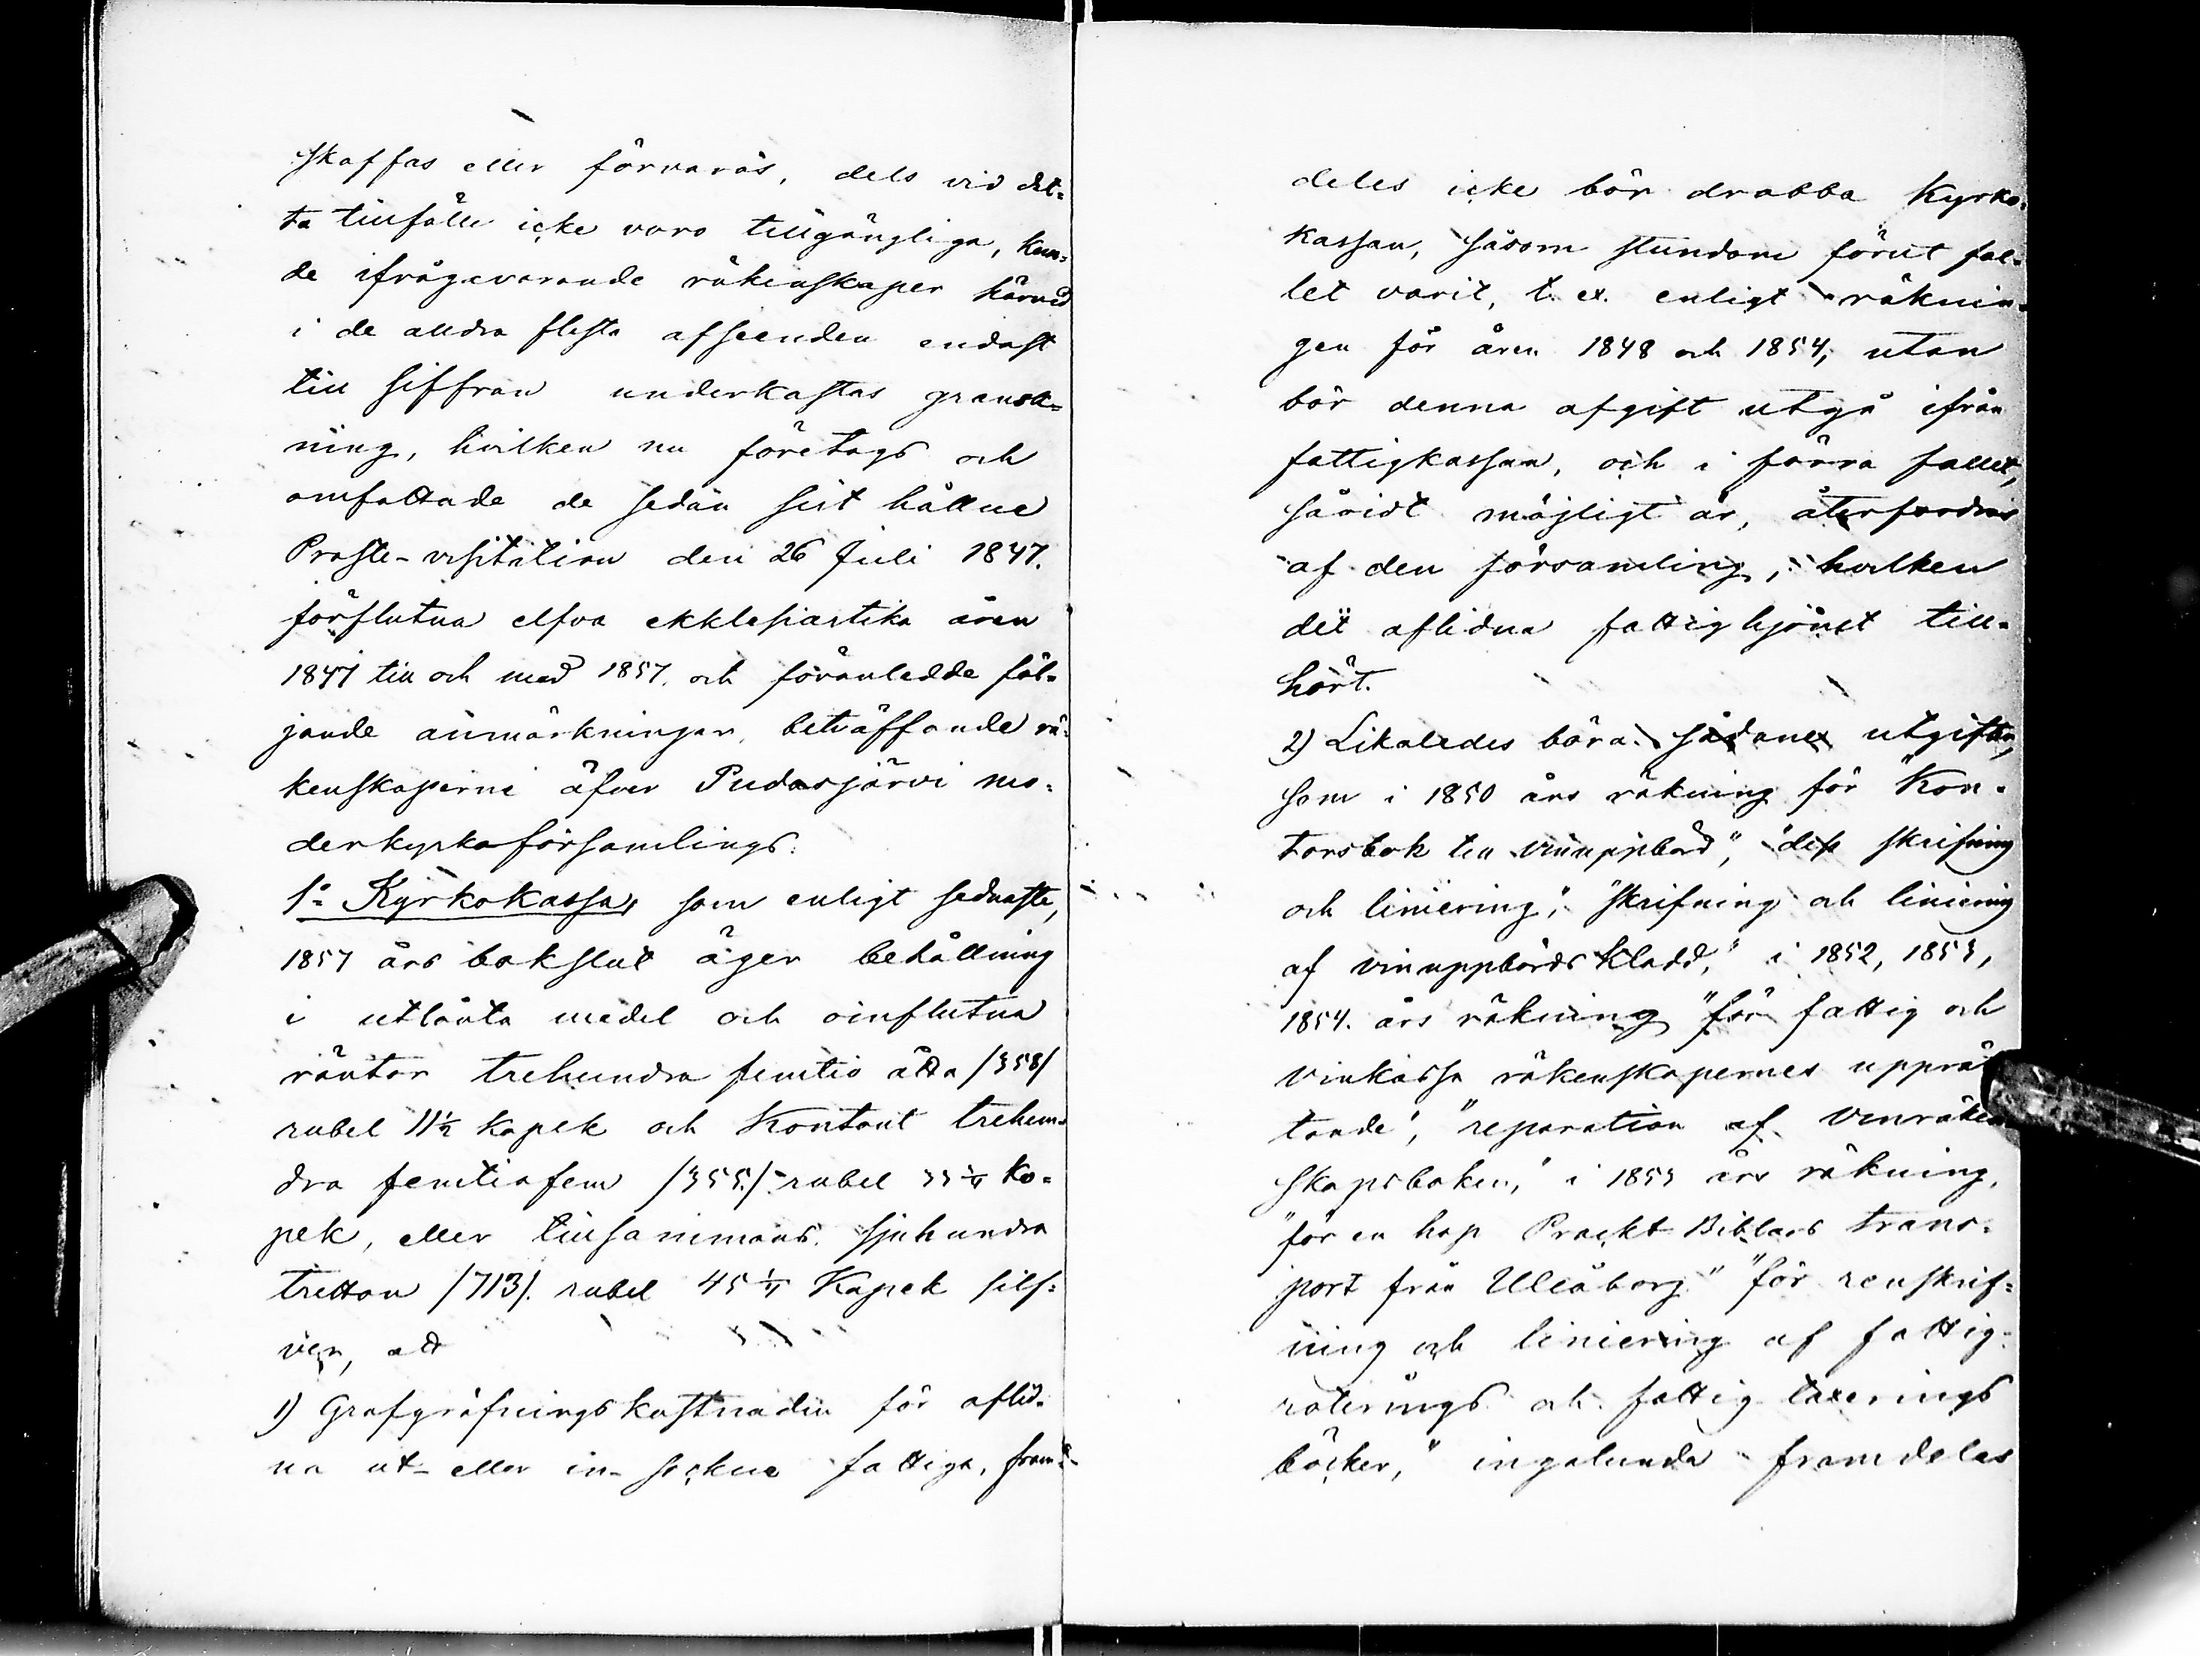 skaffas eller förvaras, dels vid det-
ta tillfälle icke voro tillgängliga, kun-
de ifrågavarande räkenskaper härvid
i de allra flesta afseenden endast
till siffran underkastas gransk-
ning, hvilken nu företogs och
omfattade de sedan sist hållne
Proste-visitation den 26 Juli 1847.
förflutna elfva ekklesiastika åren
1847 till och med 1857. och föranledde föl-
jande anmärkningar, beträffande rä-
kenskaperne öfver Pudasjärvi mo-
derkyrkoförsamlings.
1o Kyrkokassa, som enligt sednaste,
1857 års bokslut äger behållning
i utlånta medel och oinflutna
räntor trehundra femtio åtta /358/
rubel 11½ kopek och kontant trehun-
dra femtiofem /355./ rubel ko-
pek, eller tillsammans sjuhundra
tretton /713/. rubel 45 Kopek silf-
ver, att
1) Grafgräfningskostnaden för aflid-
na ut- eller in- sockne fattiga, fram-
deles icke bör drabba Kyrko-
kassan, såsom stundom förut fal-
let varit, t. ex. enligt räknin-
gen för åren 1848 och 1854, utan
bör denna afgift utgå ifrån
fattigkassan, och i förra fallet,
såvidt möjligt är, återfordras
af den församling, hvilken
det aflidna fattighjonet till-
hört.
2) Likaledes böra sådane utgifter,
som i 1850 års räkning för "Kon-
torsbok till vinuppbörd", "dess skrifning
och liniering", "skrifning och liniering
af vinuppbörds kladd," i 1852, 1853,
1854. års räkning "för fattig och
vinkassa räkenskapernes upprät
tande", "reparation af vinräken
skapsboken," i 1853 års räkning,
"för en hop Prackt Biblars trans-
port från Uleåborg" "för renskrif-
ning och liniering af fattig-
roterings och fattig taxerings
böcker," ingalunda framdeles